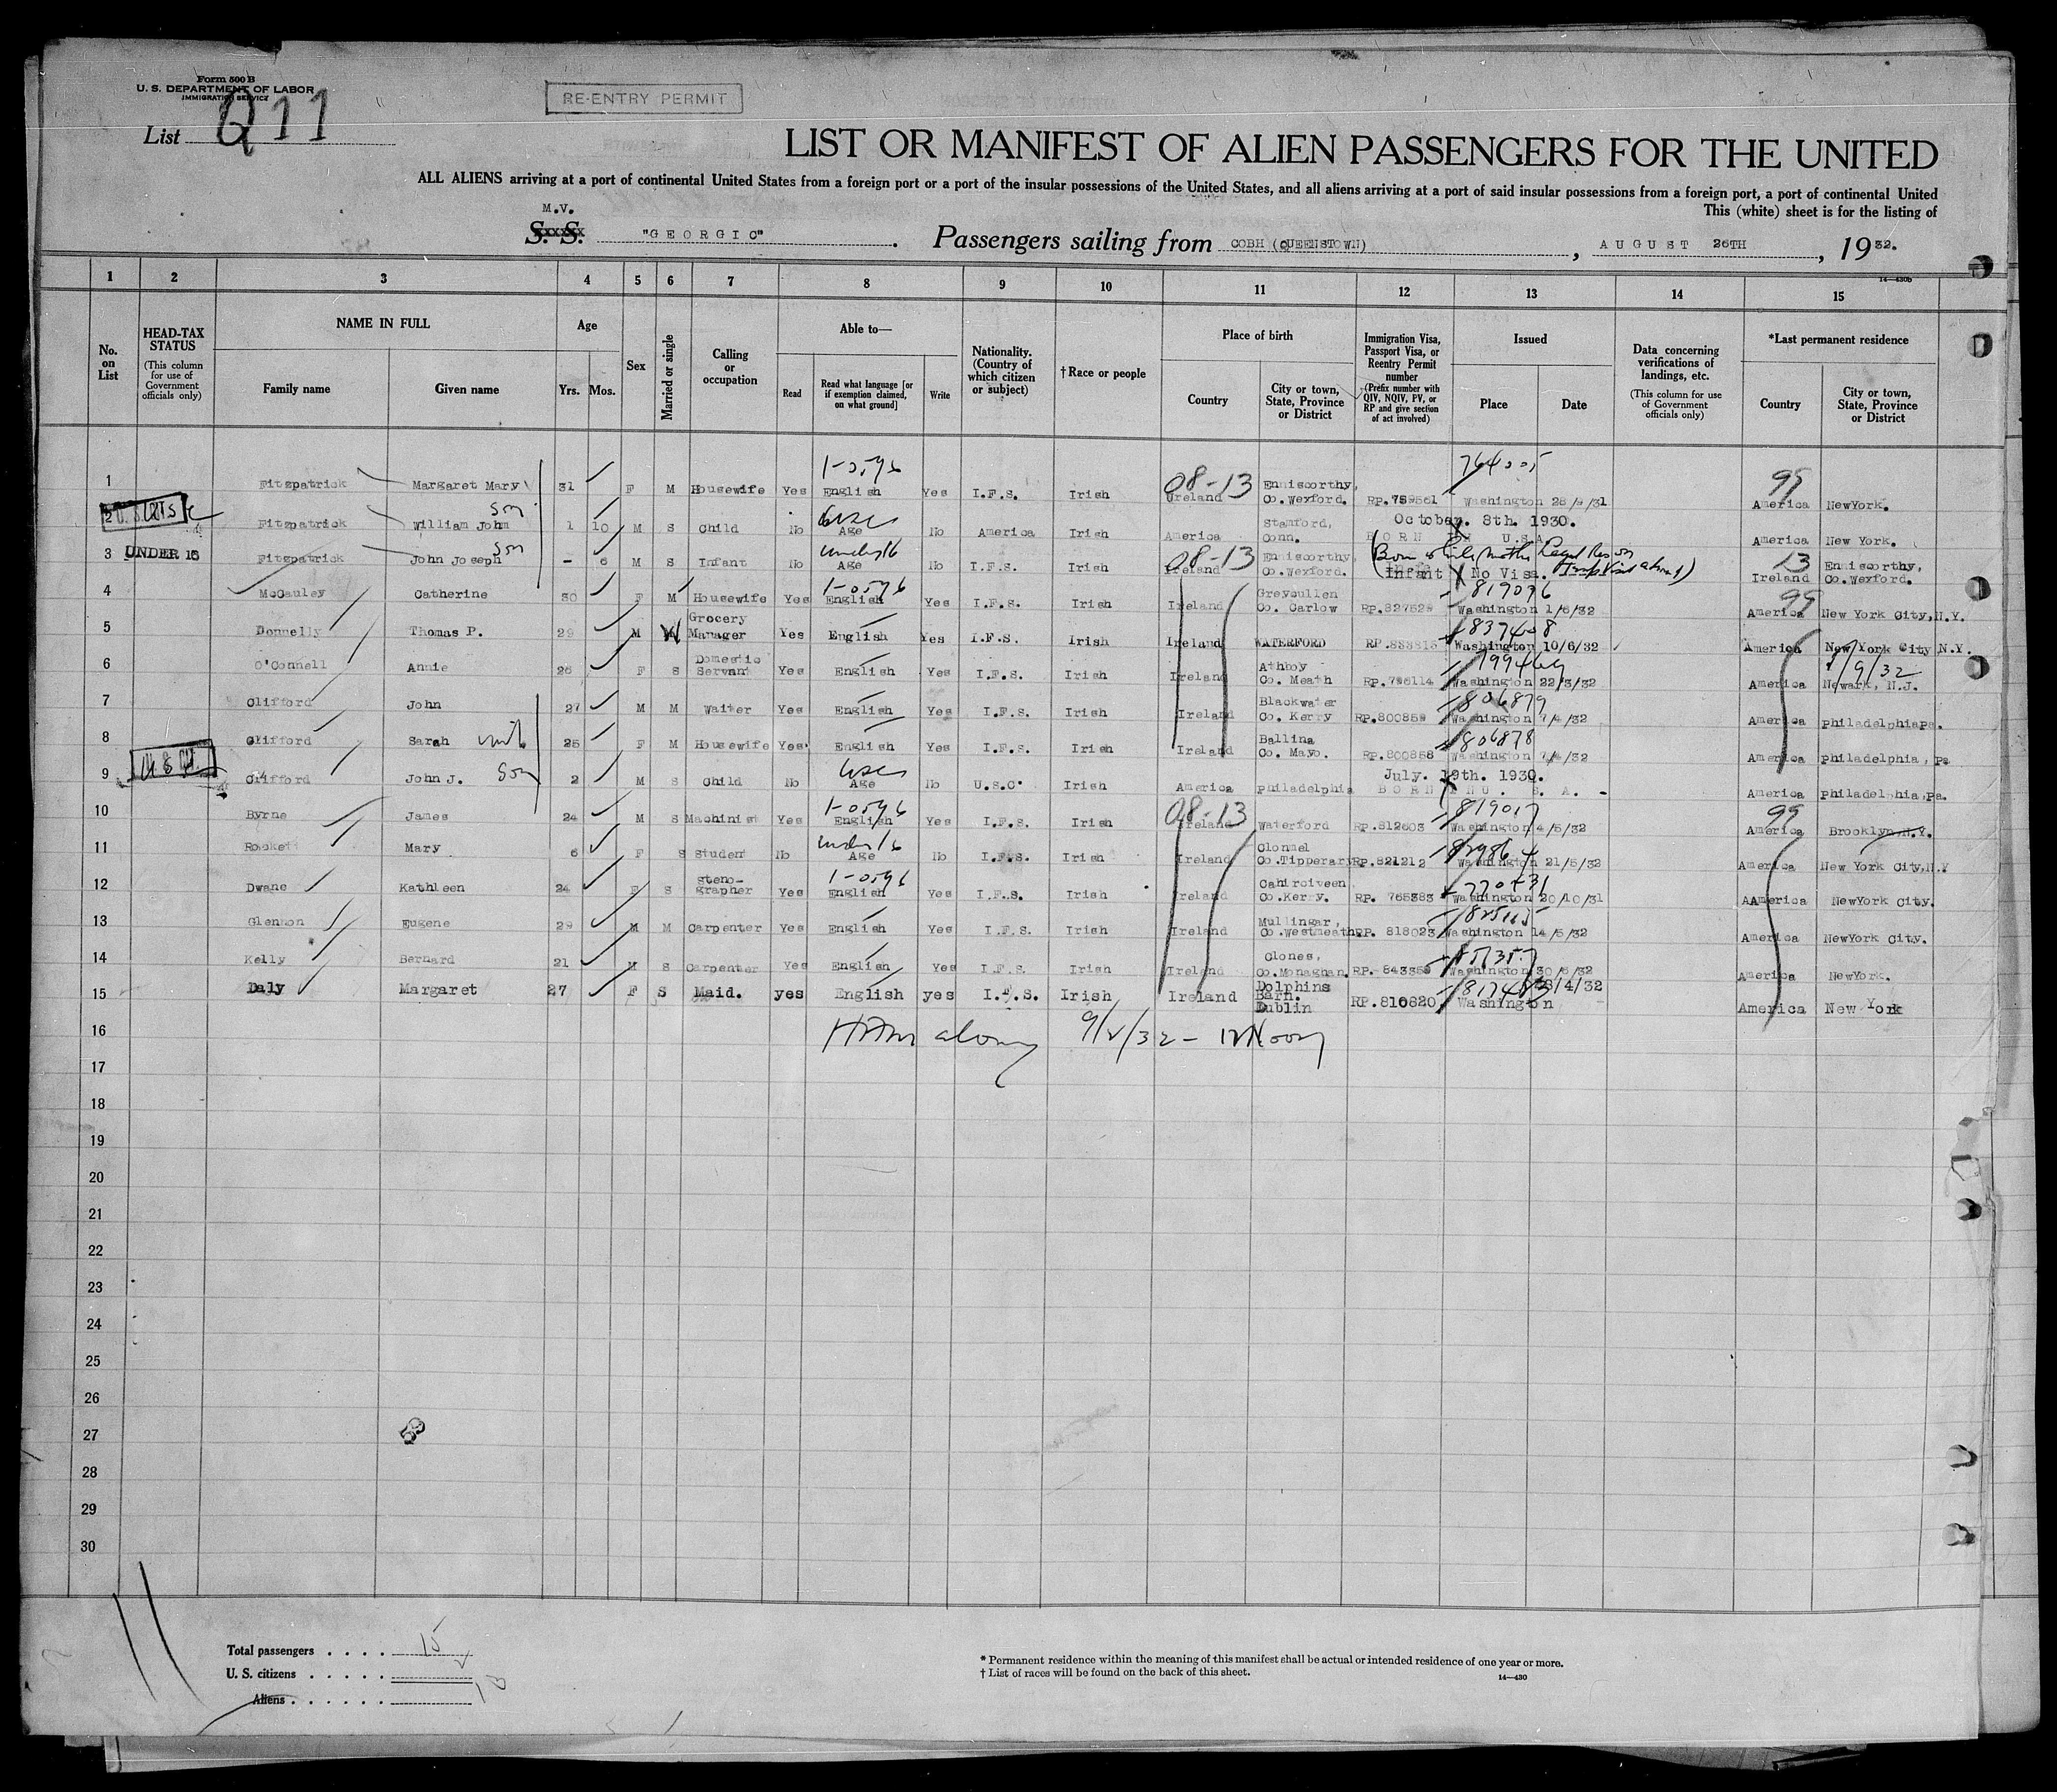 Form 500 B
U. S. DEPARTMENT OF LABOR
IMMIGRATION SERVICE
RE-ENTRY PERMIT
List Q 11
LIST OR MANIFEST OF ALIEN PASSENGERS FOR THE UNITED
ALL ALIENS arriving at a port of continental United States from a foreign port or a port of the insular possessions of the United States, and all aliens arriving at a port of said insular possessions from a foreign port, a port of continental United
This (white) sheet is for the listing of
M.V.
S. S. "GEORGIC". Passengers sailing from COBH (QUEENSTOWN), AUGUST 26TH, 1932.
14—430b
1 2 3 4 5 6 7 8 9 10 11 12 13 14 15
No. on List
HEAD-TAX STATUS (This column for use of Government officials only)
NAME IN FULL
Family name
Given name
Age
Yrs. Mos.
Sex
Married or single
Calling or occupation
Able to—
Read
Read what language [or if exemption claimed, on what ground]
Write
Nationality. (Country of which citizen or subject)
† Race or people
Place of birth
Country
City or town, State, Province or District
Immigration Visa, Passport Visa, or Reentry Permit number (Prefix number with QIV, NQIV, PV, or RP and give section of act involved)
Issued
Place
Date
Data concerning verifications of landings, etc. (This column for use of Government officials only)
*Last permanent residence
Country
City or town, State, Province or District
1-0596 764005
1 Fitzpatrick Margaret Mary 31 F M Housewife Yes English Yes I.F.S. Irish 08-13 Ireland Enniscorthy, Co. Wexford. RP.759561 Washington 28/9/31 99 America NewYork.
2 Fitzpatrick William John son 1 10 M S Child No USC Age No America Irish America Stamford, Conn. October. 8th. 1930. BORN IN U.S.A. America New York.
3 UNDER 16 Fitzpatrick John Joseph Son - 6 M S Infant No under 16 Age No I.F.S. Irish 08-13 Ireland Enniscorthy, Co. Wexford. (Born while Mother Legal Res on Temp Visit abroad) Infant No Visa. 13 Ireland Enniscorthy, Co. Wexford.
4 McCauley Catherine 30 F M Housewife Yes 1-0596 English Yes I.F.S. Irish Ireland Greycullen Co. Carlow RP.827529 819096 Washington 1/6/32 99 America New York City, N.Y.
5 Donnelly Thomas P. 29 M Grocery Manager Yes English Yes I.F.S. Irish Ireland WATERFORD 837408 Washington 10/6/32 America New York City N.Y.
6 O'Connell Annie 26 F S Domestic Servant Yes English Yes I.F.S. Irish Ireland Athboy Co. Meath RP.796114 Washington 22/3/32 1/9/32 America Newark, N.J.
7 Clifford John 27 M M Waiter Yes English Yes I.F.S. Irish Ireland Blackwater Co. Kerry RP.800859 806879 Washington 7/4/32 America philadelphiaPa.
8 Clifford Sarah wife 25 F M Housewife Yes English Yes I.F.S. Irish Ireland Ballina Co. Mayo. RP.800858 806878 Washington 7/4/32 America philadelphia, Pa
9 Clifford John J. Son 2 M S Child No USC Age No U.S.C. Irish America philadelphia July. 19th. 1930. BORN IN U. S. A. America Philadelphia, Pa.
10 Byrne James 24 M S Machinist Yes 1-0596 English Yes I.F.S. Irish 08-13 Ireland Waterford RP.812603 819017 Washington 4/5/32 99 America Brooklyn.N.Y.
11 Rockett Mary 6 F S Student No under 16 Age No I.F.S. Irish Ireland Clonmel Co.Tipperary RP.821212 Washington 21/5/32 America New York City, N.Y
12 Dwane Kathleen 24 F S steno-grapher Yes 1-0596 English Yes I.F.S. Irish Ireland Cahirciveen Co.Kerry. RP. 765383 Washington 20/10/31 AAmerica NewYork City.
13 Glennon Eugene 29 M M Carpenter Yes English Yes I.F.S. Irish Ireland Mullingar, Co.Westmeath RP. 818023 Washington 14/5/32 America NewYork City.
14 Kelly Bernard 21 M S Carpenter Yes English Yes I.F.S. Irish Ireland Clones, Co.Monaghan. Washington 30/6/32 America NewYork.
15 Daly Margaret 27 F S Maid. yes English yes I.F.S. Irish Ireland Dolphins Barn. Dublin RP.810820 Washington America New York
16 9/2/32 - 12 Noon
17
18
19
20
21
22
23
24
25
26
27
28
29
30
Total passengers . . . . 15
U. S. citizens . . . . . 2
Aliens . . . . . .
* Permanent residence within the meaning of this manifest shall be actual or intended residence of one year or more.
† List of races will be found on the back of this sheet.
14—430